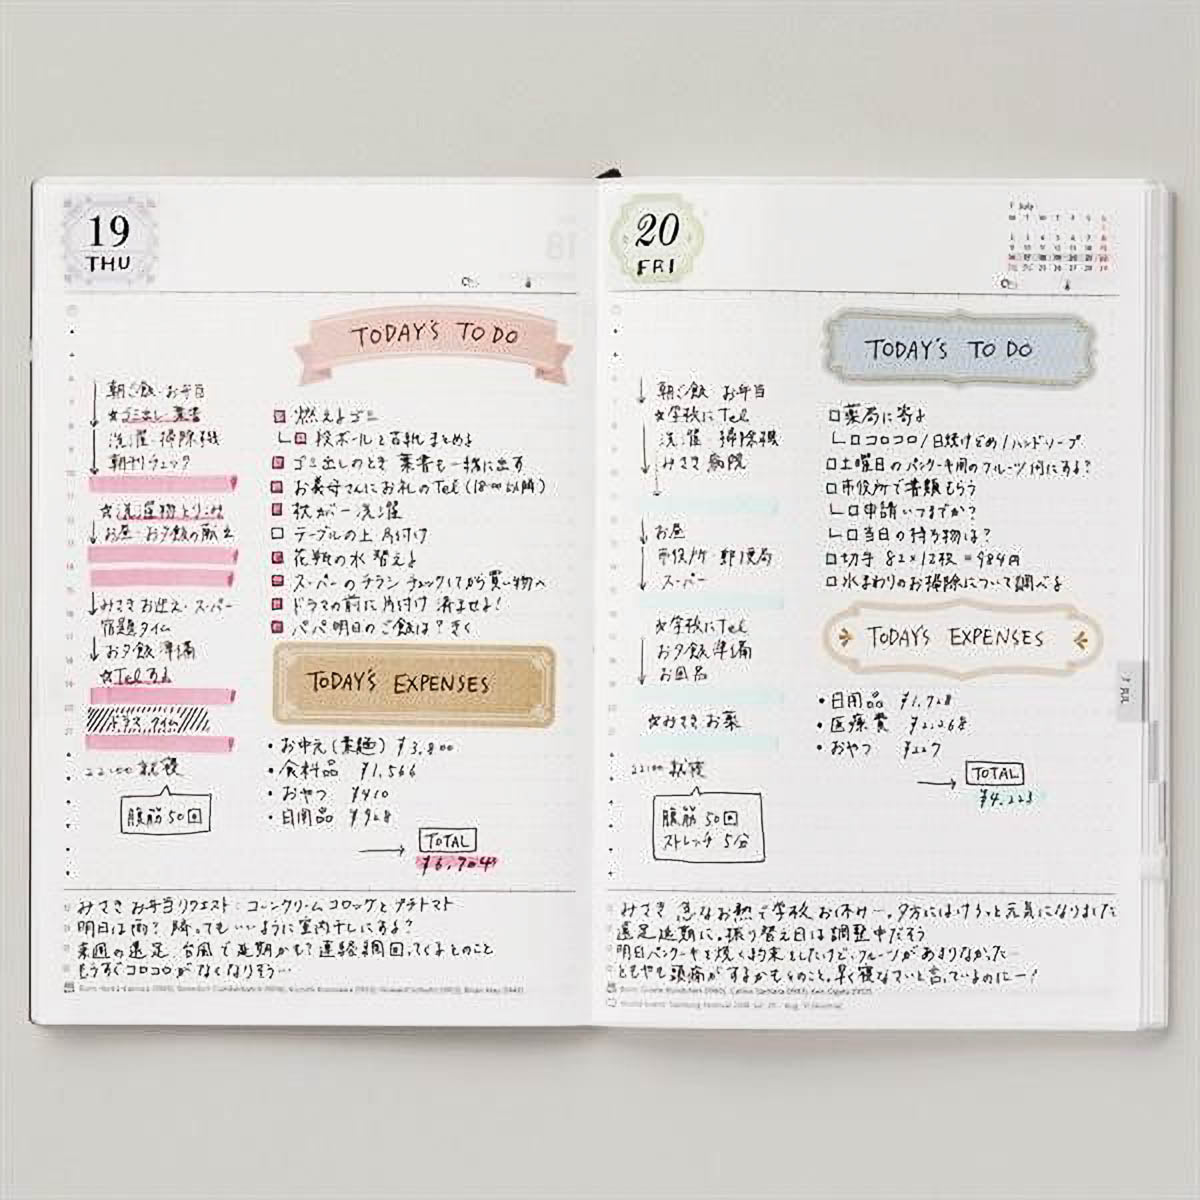 19
THU
TODAY'S TO DO
朝ご飯・お弁当
☆ゴミ出し 葉書
洗濯・掃除機
朝刊チェック
☆洗濯物とりこみ
お昼・お夕飯の献立
みさきお迎え・スーパー
宿題タイム
お夕飯準備
☆Telする
ドラマタイム
22:00 就寝
腹筋50回
燃えるゴミ
段ボールと古紙まとめる
ゴミ出しのとき 葉書も一緒に出す
お義母さんにお礼のTel(18:00以降)
枕カバー洗濯
テーブルの上 片付け
花瓶の水 替える
スーパーのチラシ チェックしてから買い物へ
ドラマの前に片付け 済ませる!
パパ明日のご飯は?きく
TODAY'S EXPENSES
・お中元(素麺) ¥3,800
・食料品 ¥1,566
・おやつ ¥410
・日用品 ¥928
TOTAL
¥6,704
みさき お弁当リクエスト:コーンクリームコロッケとプチトマト
明日は雨?降ってもいいように室内干しにする?
来週の遠足、台風で延期かも?連絡網回ってくるとのこと
もうすぐコロコロがなくなりそう…
20
FRI
7 July
TODAY'S TO DO
朝ご飯・お弁当
☆学校にTel
洗濯・掃除機
みさき病院
お昼
市役所・郵便局
スーパー
☆学校にTel
お夕飯準備
お風呂
☆みさきお薬
22:00 就寝
腹筋50回
ストレッチ 5分
薬局に寄る
コロコロ/日焼け止め/ハンドソープ
土曜日のパンケーキ用のフルーツ何にする?
市役所で書類もらう
申請いつまでか?
当日の持ち物は?
切手 82×12枚=984円
水まわりのお掃除について調べる
TODAY'S EXPENSES
・日用品 ¥1,728
・医療費 ¥2,268
・おやつ ¥227
TOTAL
¥4,223
7 JUL
みさき 急なお熱で学校お休みー。夕方にはけろっと元気になりました
遠足延期に。振り替え日は調整中だそう
明日パンケーキを焼く約束をしたけど、フルーツがあまりなかった…
ともやも頭痛がするかもとのこと。早く寝なさいと言っているのにー!